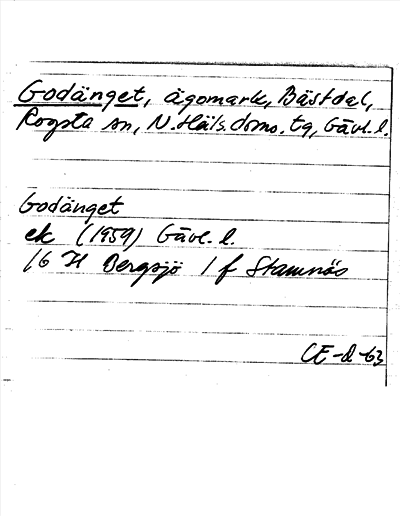 Godänget, ägomark, Bästdal,
Rogsta sn, N. Häls. doms. tg, Gävl. l.
Godänget
ek (1959) Gävl. l.
16 H Bergsjö 1 f Stamnäs
CE-d-63